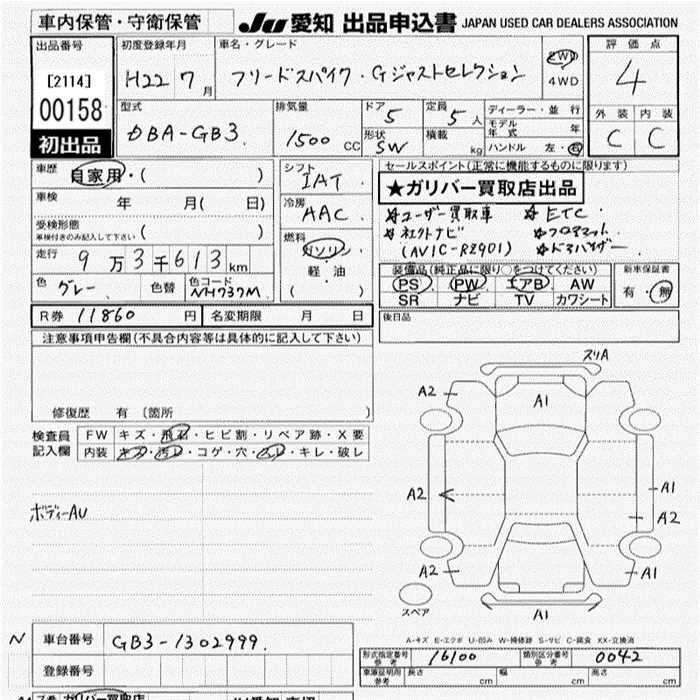 車内保管・守衛保管
JU 愛知 出品申込書 JAPAN USED CAR DEALERS ASSOCIATION
出品番号
[2114]
00158
初出品
初度登録年月
H22 7月
車名・グレード
フリードスパイク・Gジャストセレクション
2WD
4WD
評価点
4
外装 内装
C C
型式
DBA-GB3.
排気量
1500 CC
ドア
5
定員
5人
形状
SW
積載
kg
ディーラー・並行
モデル年式 年
ハンドル 左・右
車歴
自家用・( )
車検 年 月( 日)
受検形態
車検付きのみ記入して下さい ( )
走行
9万3千613km
色
グレー
色替
色コード
NH737M
シフト
IAT
冷房
AAC
燃料
ガソリン
軽・油
( )
セールスポイント(正常に機能するものに限ります)
★ガリバー買取店出品
☆ユーザー買取車 ☆ETC
☆社外ナビ ☆フロアマット
(AVIC-RZ901) ☆ドアバイザー
装備品(純正品に限り○をつけてください)
PS PW エアB AW
SR ナビ TV カワシート
新車保証書
有・無
R券 11860円
名変期限 月 日
後日品
注意事項申告欄(不具合内容等は具体的に記入して下さい)
修復歴 有 〔箇所 〕
検査員
記入欄
FW キズ・飛石・ヒビ割・リペア跡・X要
内装 キズ・汚れ・コゲ・穴・スレ・キレ・破レ
ボディーAU
スリA
A2
A1
A2
A1
A2
A2
A1
A1
スペア
A-キズ E-エクボ U-凹み W-補修跡 S-サビ C-腐食 XX-交換済
N
車台番号 GB3-1302999.
登録番号
形式指定番号
参考
16100
類別区分番号
参考
0042
車庫証明用
参考
長さ cm 幅 cm 高さ cm
ガリバー買取店